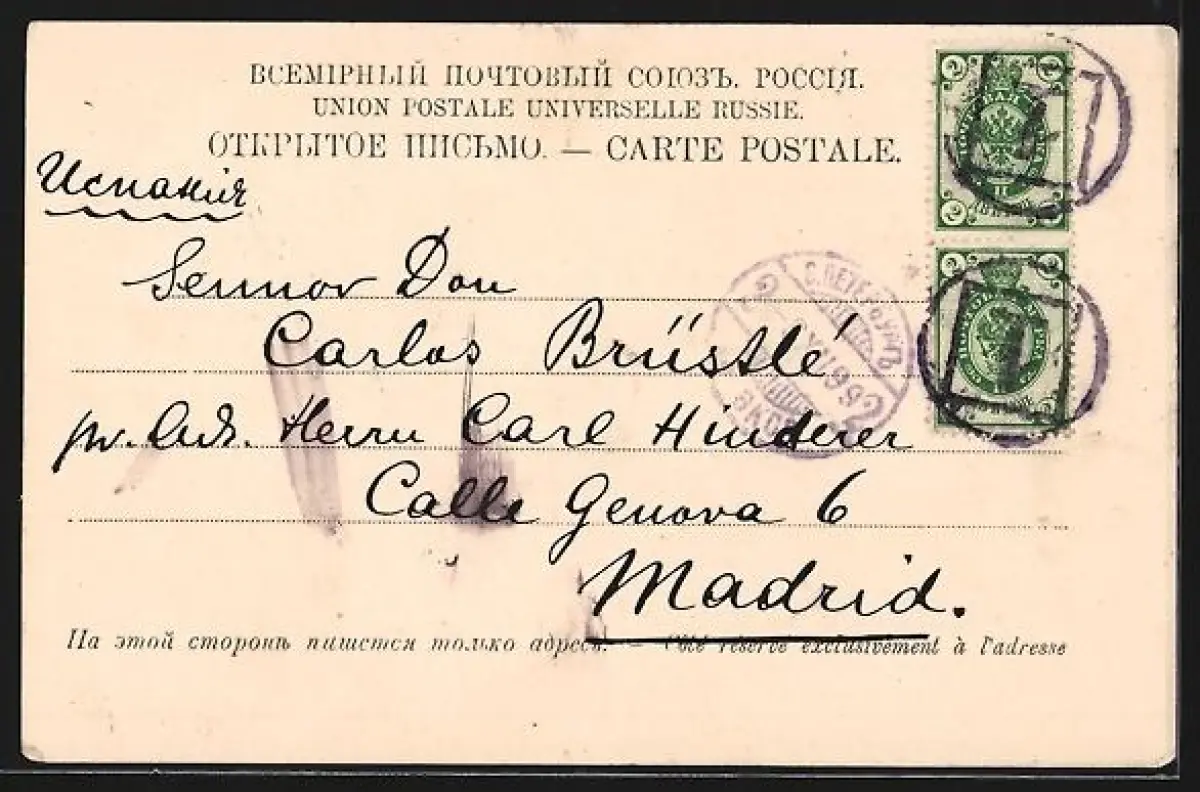 ВСЕМІРНЫЙ ПОЧТОВЫЙ СОЮЗЪ. РОССІЯ.
UNION POSTALE UNIVERSELLE RUSSIE.
ОТКРЫТОЕ ПИСЬМО. — CARTE POSTALE.
Испанія
Sennor Don
Carlos Brüstlé
pr. Adr. Herrn Carl Hinderer
Calle Genova 6
Madrid.
На этой сторонѣ пишется только адресъ. — Côté réservé exclusivement à l'adresse
2 2
2 2
2
С.ПЕТЕРБУРГЪ
XII 99
2
1
2 2
2 2
1